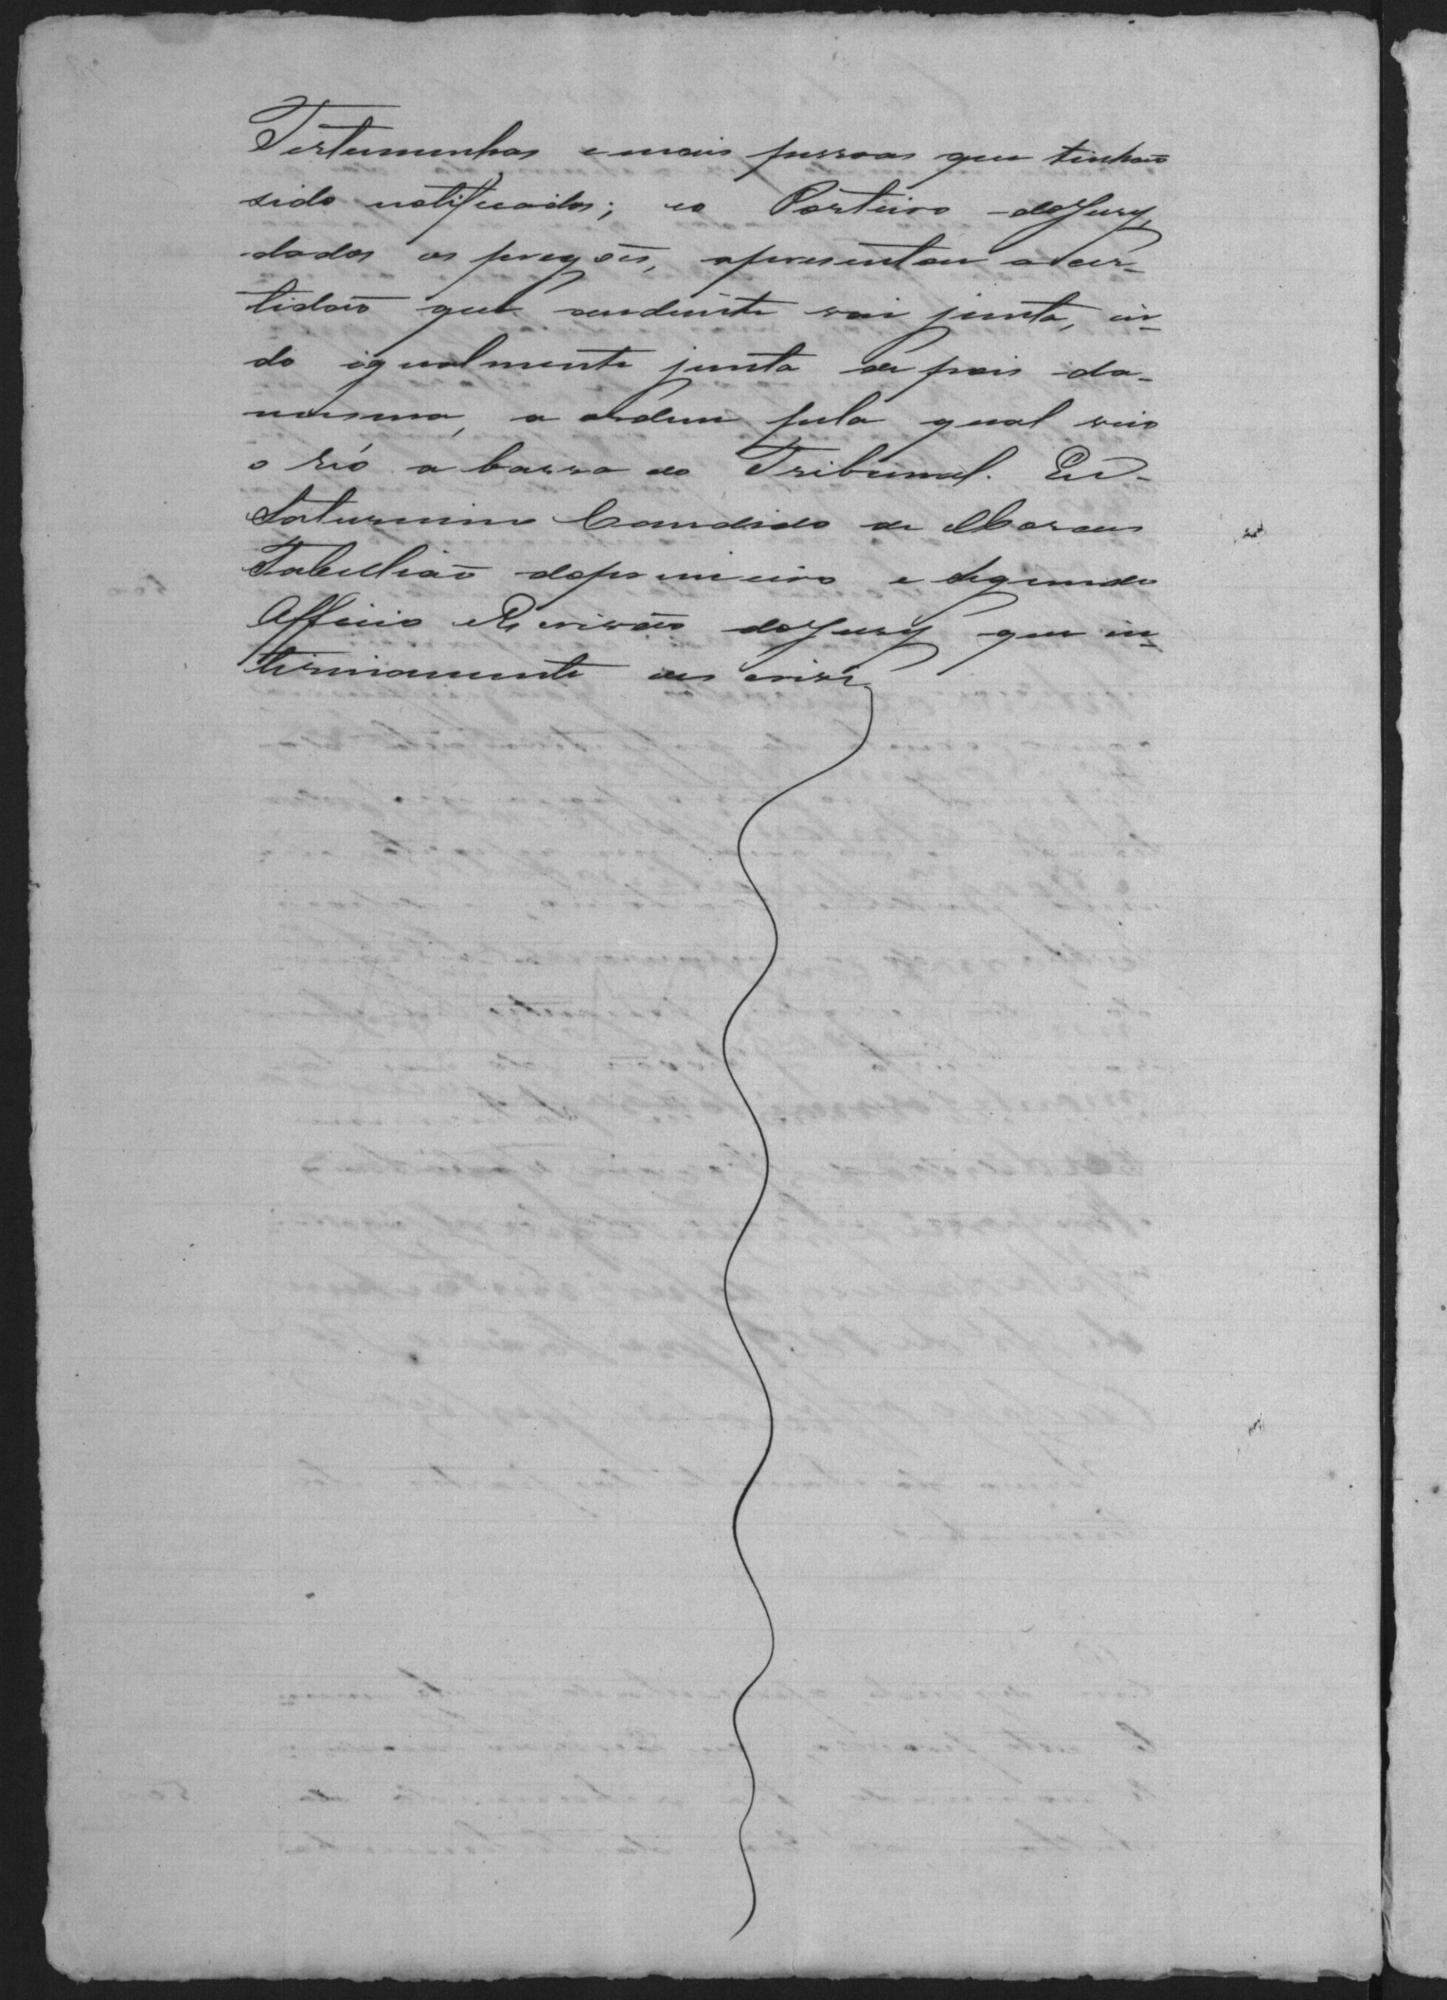 Testemunhas e mais pessoas que tinhão
sido notificadas; e o Porteiro do Jury,
dados os pregões, apresentou a cer-
tidão que adiante vai junta, in-
do igualmente junta depois da
mesma, a ordem pela qual veio
o réo a barra do Tribunal. Eu
Saturnino Candido de Moraes
Tabellião do primeiro e segundo
Officio Escrivão do Jury que in-
terinamente escrevi